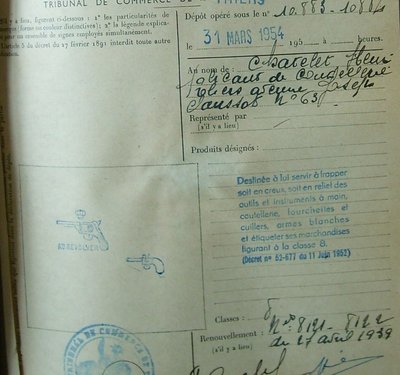 TRIBUNAL DE COMMERCE DE THIERS
s'il y a lieu, figurent ci-dessous : 1° les particularités de
marque : forme ou couleur distinctives ; 2° la légende explica-
pour un ensemble de signes employés simultanément.
L'article 5 du décret du 17 février 1891 interdit toute autre
AU REVOLVER
TRIBUNAL DE COMMERCE DE
Dépôt opéré sous le n° 10.883 - 10884
le 31 MARS 1954 195 à heures.
Au nom de : Chatelet Henri
fabricant de Coutellerie
Thiers avenue Joseph
Claussat N° 63
Représenté par
(s'il y a lieu)
Produits désignés :
Destinée à lui servir à frapper
soit en creux, soit en relief des
outils et instruments à main,
coutellerie, fourchettes et
cuillers, armes blanches
et étiqueter ses marchandises
figurant à la classe 8.
(Décret n° 52-677 du 11 Juin 1952)
Classes : 8
Renouvellement : Nos 8121 - 8122
(s'il y a lieu) du 27 avril 1939